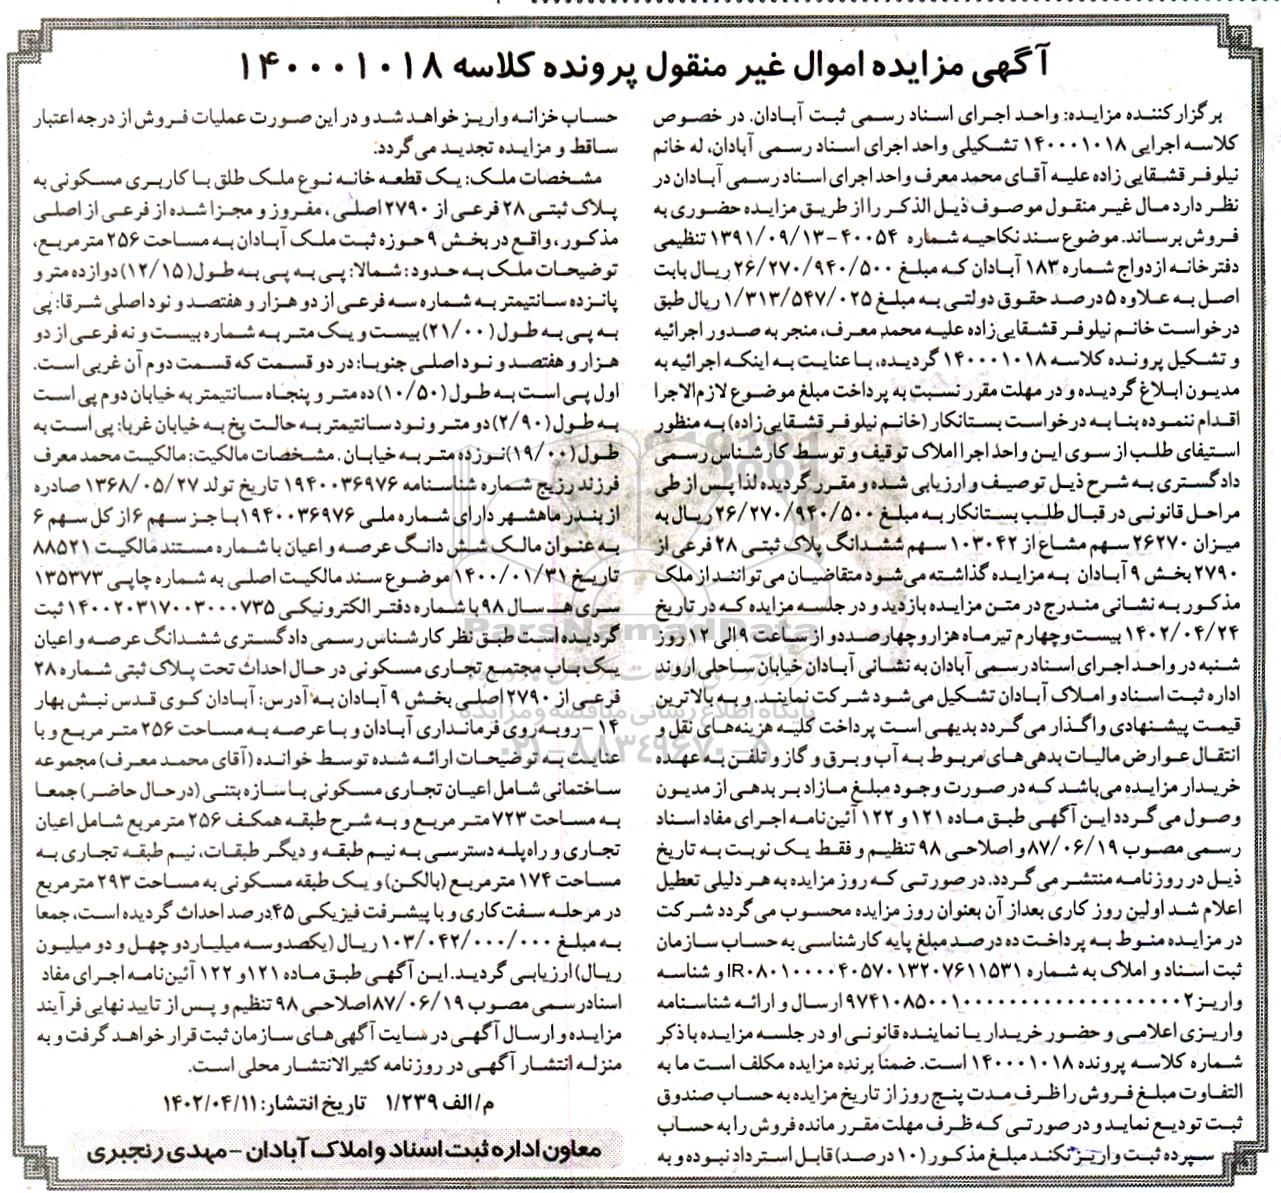 آگهی مزایده اموال غیر منقول پرونده کلاسه ۱۴۰۰۰۱۰۱۸
برگزارکننده مزایده: واحد اجرای اسناد رسمی ثبت آبادان. در خصوص
کلاسه اجرایی ۱۴۰۰۰۱۰۱۸ تشکیلی واحد اجرای اسناد رسمی آبادان، له خانم
نیلوفر قشقایی‌زاده علیه آقای محمد معرف واحد اجرای اسناد رسمی آبادان در
نظر دارد مال غیر منقول موصوف ذیل الذکر را از طریق مزایده حضوری به
فروش برساند. موضوع سند نکاحیه شماره ۴۰۰۵۴-۱۳۹۱/۰۹/۱۳ تنظیمی
دفترخانه ازدواج شماره ۱۸۳ آبادان که مبلغ ۲۶/۲۷۰/۹۴۰/۵۰۰ ریال بابت
اصل به علاوه ۵ درصد حقوق دولتی به مبلغ ۱/۳۱۳/۵۴۷/۰۲۵ ریال طبق
درخواست خانم نیلوفر قشقایی‌زاده علیه محمد معرف، منجر به صدور اجرائیه
و تشکیل پرونده کلاسه ۱۴۰۰۰۱۰۱۸ گردیده، با عنایت به اینکه اجرائیه به
مدیون ابلاغ گردیده و در مهلت مقرر نسبت به پرداخت مبلغ موضوع لازم‌الاجرا
اقدام ننموده بنا به درخواست بستانکار (خانم نیلوفر قشقایی‌زاده) به منظور
استیفای طلب از سوی این واحد اجرا املاک توقیف و توسط کارشناس رسمی
دادگستری به شرح ذیل توصیف و ارزیابی شده و مقرر گردیده لذا پس از طی
مراحل قانونی در قبال طلب بستانکار به مبلغ ۲۶/۲۷۰/۹۴۰/۵۰۰ ریال به
میزان ۲۶۲۷۰ سهم مشاع از ۱۰۳۰۴۲ سهم ششدانگ پلاک ثبتی ۲۸ فرعی از
۲۷۹۰ بخش ۹ آبادان به مزایده گذاشته می‌شود متقاضیان می‌توانند از ملک
مذکور به نشانی مندرج در متن مزایده بازدید و در جلسه مزایده که در تاریخ
۱۴۰۲/۰۴/۲۴ بیست‌وچهارم تیرماه هزاروچهارصددو از ساعت ۹ الی ۱۲ روز
شنبه در واحد اجرای اسناد رسمی آبادان به نشانی آبادان خیابان ساحلی اروند
اداره ثبت اسناد و املاک آبادان تشکیل می‌شود شرکت نمایند. و به بالاترین
قیمت پیشنهادی واگذار می‌گردد بدیهی است پرداخت کلیه هزینه‌های نقل و
انتقال عوارض مالیات بدهی‌های مربوط به آب و برق و گاز و تلفن به عهده
خریدار مزایده می‌باشد که در صورت وجود مبلغ مازاد بر بدهی از مدیون
وصول می‌گردد این آگهی طبق ماده ۱۲۱ و ۱۲۲ آئین‌نامه اجرای مفاد اسناد
رسمی مصوب ۸۷/۰۶/۱۹ و اصلاحی ۹۸ تنظیم و فقط یک نوبت به تاریخ
ذیل در روزنامه منتشر می گردد. در صورتی که روز مزایده به هر دلیلی تعطیل
اعلام شد اولین روز کاری بعداز آن بعنوان روز مزایده محسوب می گردد شرکت
در مزایده منوط به پرداخت ده درصد مبلغ پایه کارشناسی به حساب سازمان
ثبت اسناد و املاک به شماره IR۰۸۰۱۰۰۰۰۴۰۵۷۰۱۳۲۰۷۶۱۱۵۳۱ و شناسه
واریز ارسال و ارائه شناسنامه
واریزی اعلامی و حضور خریدار یا نماینده قانونی او در جلسه مزایده با ذکر
شماره کلاسه پرونده ۱۴۰۰۰۱۰۱۸ است. ضمنا برنده مزایده مکلف است ما به
التفاوت مبلغ فروش را ظرف مدت پنج روز از تاریخ مزایده به حساب صندوق
ثبت تودیع نماید و در صورتی که ظرف مهلت مقرر مانده فروش را به حساب
سپرده ثبت واریز نکند مبلغ مذکور (۱۰ درصد) قابل استرداد نبوده و به
حساب خزانه واریز خواهد شد و در این صورت عملیات فروش از درجه اعتبار
ساقط و مزایده تجدید می‌گردد.
مشخصات ملک: یک قطعه خانه نوع ملک طلق با کاربری مسکونی به
پلاک ثبتی ۲۸ فرعی از ۲۷۹۰ اصلی، مفروز و مجزا شده از فرعی از اصلی
مذکور، واقع در بخش ۹ حوزه ثبت ملک آبادان به مساحت ۲۵۶ مترمربع،
توضیحات ملک به حدود: شمالا: پی به پی به طول (۱۲/۱۵) دوازده متر و
پانزده سانتیمتر به شماره سه فرعی از دو هزار و هفتصد و نود اصلی شرقا: پی
به پی به طول (۲۱/۰۰) بیست و یک متر به شماره بیست و نه فرعی از دو
هزار و هفتصد و نود اصلی جنوبا: در دو قسمت که قسمت دوم آن غربی است.
اول پی است به طول (۱۰/۵۰) ده متر و پنجاه سانتیمتر به خیابان دوم پی است
به طول (۲/۹۰) دو متر و نود سانتیمتر به حالت پخ به خیابان غربا: پی است به
طول (۱۹/۰۰) نوزده متر به خیابان. مشخصات مالکیت: مالکیت محمد معرف
فرزند رزیج شماره شناسنامه ۱۹۴۰۰۳۶۹۷۶ تاریخ تولد ۱۳۶۸/۰۵/۲۷ صادره
از بندر ماهشهر دارای شماره ملی ۱۹۴۰۰۳۶۹۷۶ با جز سهم ۶ از کل سهم ۶
به عنوان مالک شش دانگ عرصه و اعیان با شماره مستند مالکیت ۸۸۵۲۱
تاریخ ۱۴۰۰/۰۱/۳۱ موضوع سند مالکیت اصلی به شماره چاپی ۱۳۵۳۷۳
سری هـ سال ۹۸ با شماره دفتر الکترونیکی ۱۴۰۰۲۰۳۱۷۰۰۳۰۰۰۷۳۵ ثبت
گردیده است طبق نظر کارشناس رسمی دادگستری ششدانگ عرصه و اعیان
یک باب مجتمع تجاری مسکونی در حال احداث تحت پلاک ثبتی شماره ۲۸
فرعی از ۲۷۹۰ اصلی بخش ۹ آبادان به آدرس: آبادان کوی قدس نبش بهار
۱۴ -روبه‌روی فرمانداری آبادان و با عرصه به مساحت ۲۵۶ متر مربع و با
عنایت به توضیحات ارائه شده توسط خوانده (آقای محمد معرف) مجموعه
ساختمانی شامل اعیان تجاری مسکونی با سازه بتنی (درحال حاضر) جمعا
به مساحت ۷۲۳ متر مربع و به شرح طبقه همکف ۲۵۶ مترمربع شامل اعیان
تجاری و راه‌پله دسترسی به نیم طبقه و دیگر طبقات، نیم طبقه تجاری به
مساحت ۱۷۴ مترمربع (بالکن) و یک طبقه مسکونی به مساحت ۲۹۳ مترمربع
در مرحله سفت‌کاری و با پیشرفت فیزیکی ۴۵درصد احداث گردیده است، جمعا
به مبلغ ۱۰۳/۰۴۲/۰۰۰/۰۰۰ ریال (یکصدوسه میلیارد و چهل و دو میلیون
ریال) ارزیابی گردید. این آگهی طبق ماده ۱۲۱ و ۱۲۲ آئین‌نامه اجرای مفاد
اسناد رسمی مصوب ۸۷/۰۶/۱۹ اصلاحی ۹۸ تنظیم و پس از تایید نهایی فرآیند
مزایده و ارسال آگهی در سایت آگهی‌های سازمان ثبت قرار خواهد گرفت و به
منزله انتشار آگهی در روزنامه کثیرالانتشار محلی است.
م/الف ۱/۲۳۹ تاریخ انتشار: ۱۴۰۲/۰۴/۱۱
معاون اداره ثبت اسناد و املاک آبادان - مهدی رنجبری
ParsNamadData
پایگاه اطلاع رسانی مناقصه و مزایده
۰۲۱-۸۸۳۴۹۴۷۰-۵